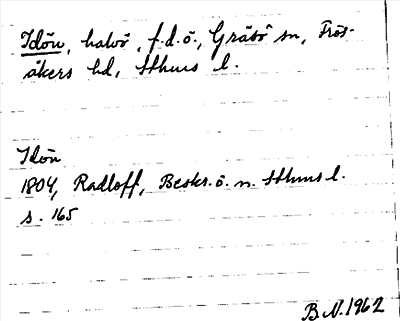 Idön, halvö, f.d.ö., Gräsö sn, Frös-
åkers hd, Sthms l.
Idön
1804, Radloff, Beskr. ö. n. Sthms l.
s. 165
B.N. 1962